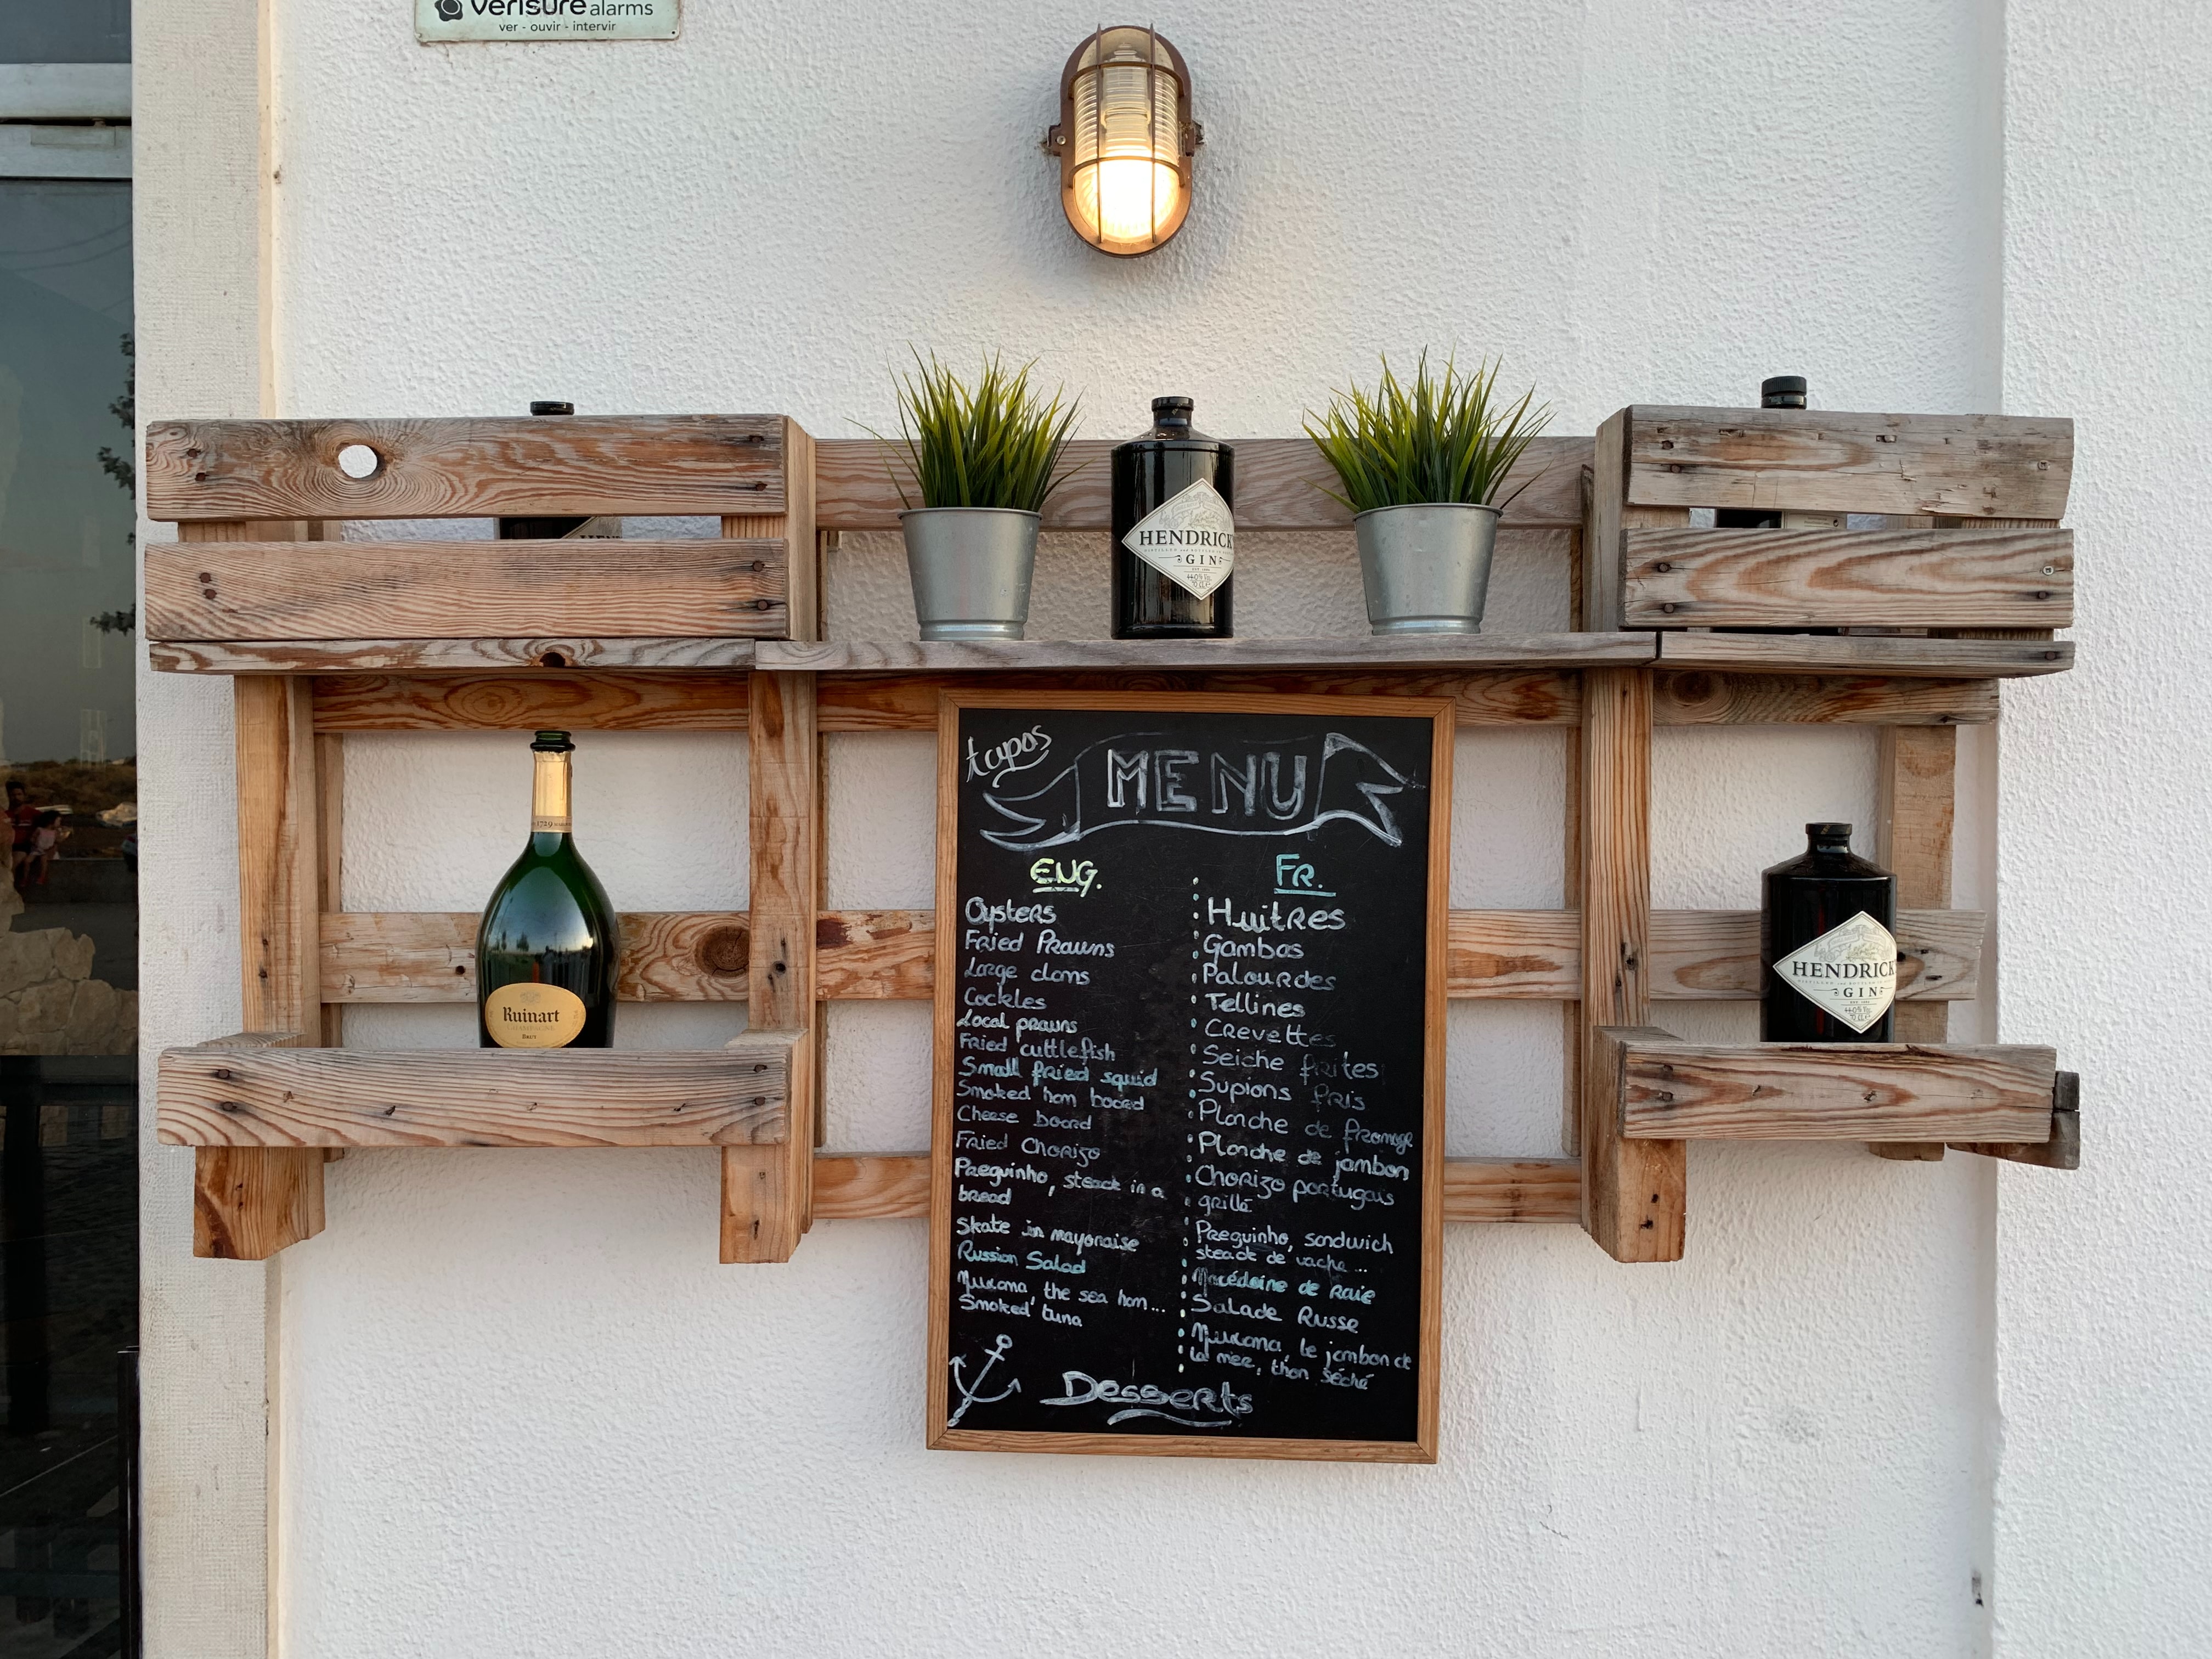 verisure alarms
ver - ouvir - intervir
HENDRICK'
GIN
HENDRICK
GIN
1729
Ruinart
CHAMPAGNE
BRUT
tapas
MENU
ENG.
Oysters
Fried Prawns
Large clams
Cockles
Local prawns
Fried cuttlefish
Small fried squid
Smoked ham board
Cheese board
Fried Chorizo
Preguinho, steack in a
bread
Skate in mayonaise
Russian Salad
Muxama, the sea ham...
Smoked tuna
FR.
Huitres
Gambas
Palourdes
Tellines
Crevettes
Seiche frites
Supions fris
Planche de fromage
Planche de jambon
Chorizo portugais
grillé
Preguinho, sandwich
steack de vache...
Macédoine de Raie
Salade Russe
Muxama, le jambon de
la mer, thon séché
Desserts